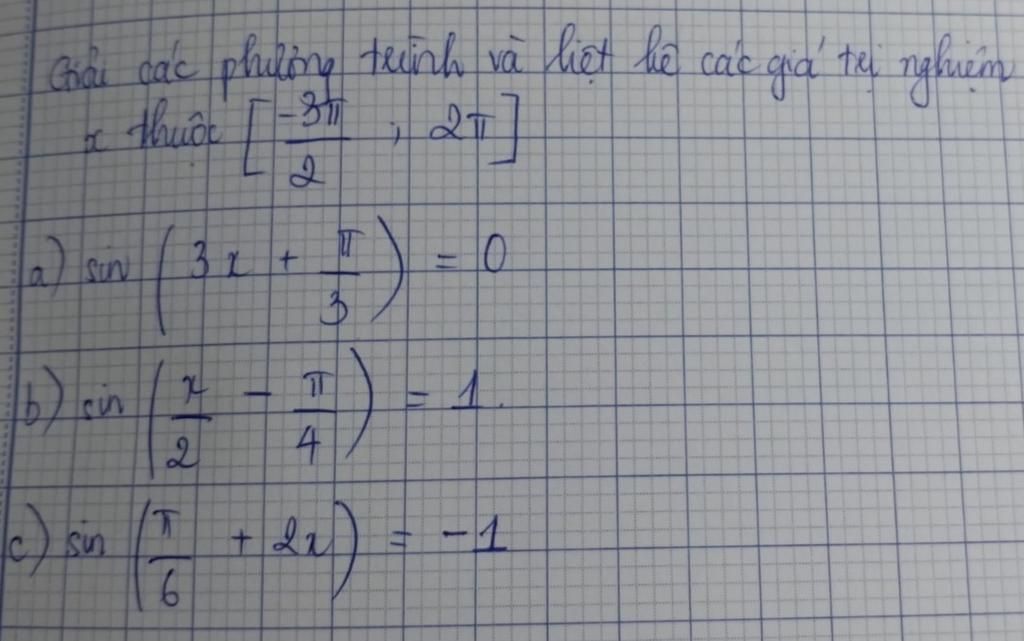 Giải các phương trình và liệt kê các giá trị nghiệm
x thuộc [-3π/2 ; 2π]
a) sin (3x + π/3) = 0
b) sin (x/2 - π/4) = 1.
c) sin (π/6 + 2x) = -1